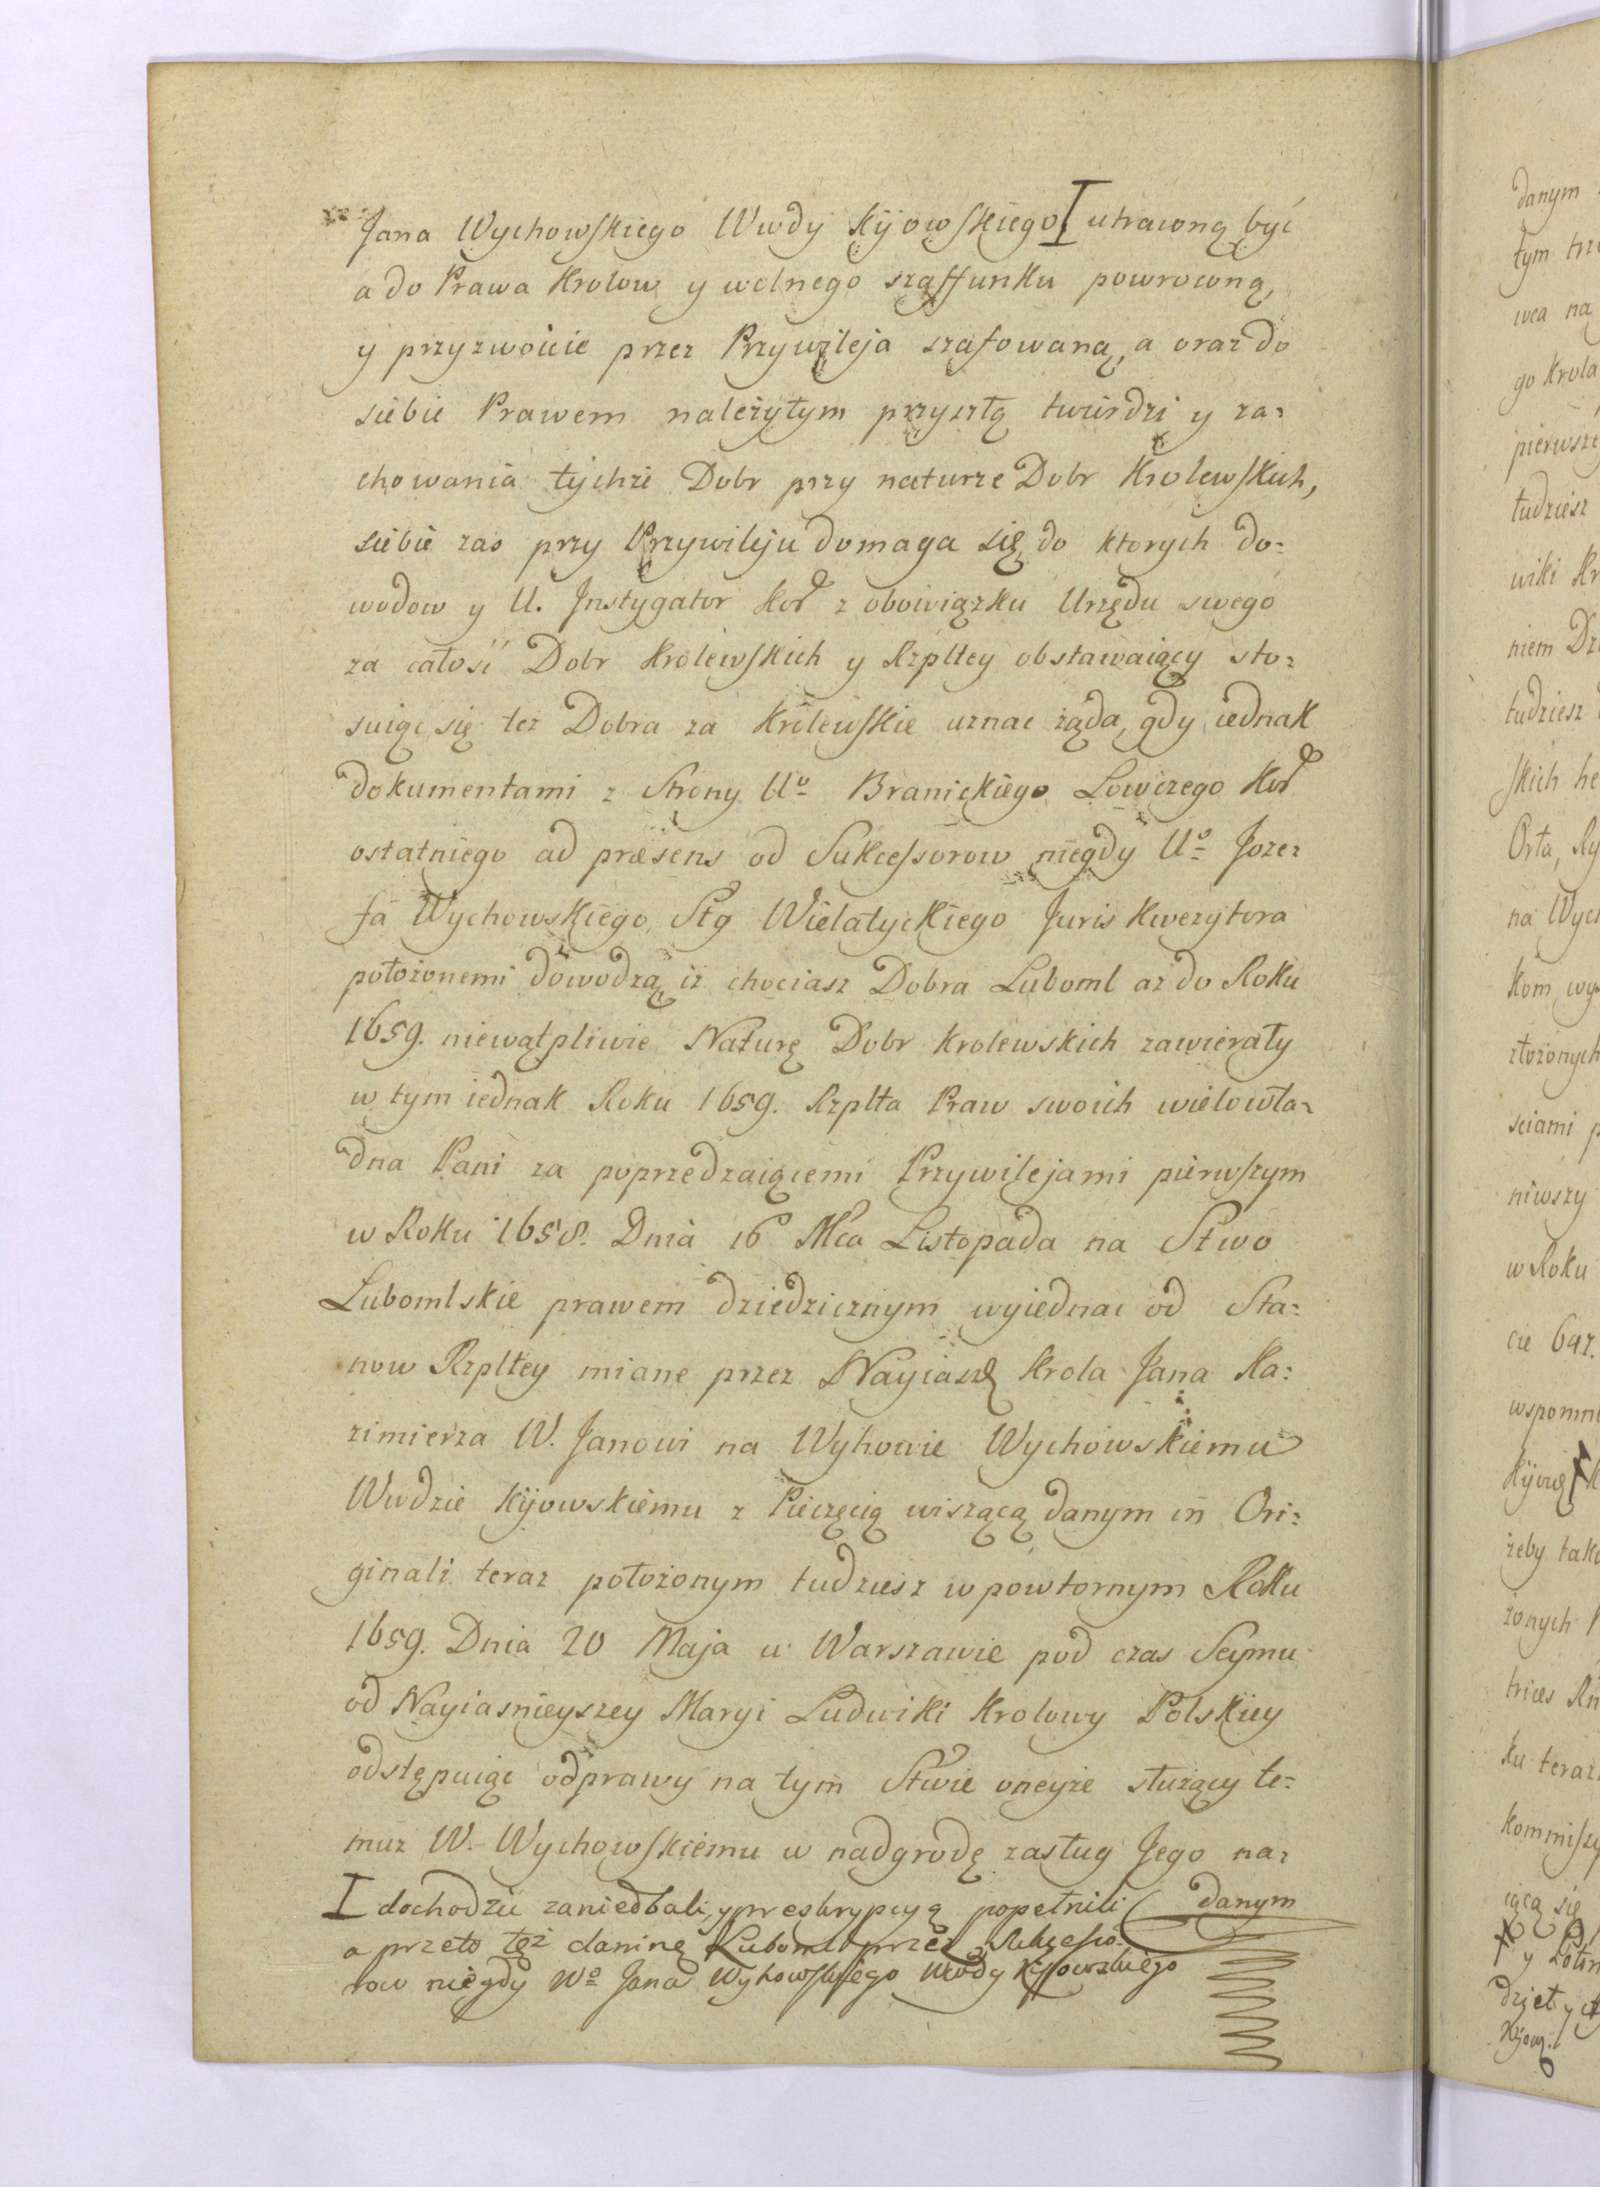 Jana Wychowskiego Wwdy Kijowskiego I utraconą być
a do Prawa Krolow y wolnego szaffunku powroconą,
y przyzwoicie przez Przywileja szafowaną, a oraz do
siebie Prawem należytym przyszłą twierdzi y za=
chowania tychże Dobr przy naturze Dobr Krolewskich,
siebie zas przy Przywileju domaga się, do ktorych do=
wodow y U. Instygator Kor z obowiązku Urzędu swego
za całosć Dobr Krolewskich y Rzpltey obstawaiący sto=
suiąc się tez Dobra za Krolewskie uznac żąda, gdy iednak
dokumentami z Strony Uo Branickiego Łowczego Kor
ostatniego ad præsens od Sukcessorow niegdy Uo Joze=
fa Wychowskiego Stg Wielatyckiego Juris kwezytora
położonemi dowodzą iż chociasz Dobra Luboml az do Roku
1659. niewątpliwie Naturę Dobr krolewskich zawierały
w tym iednak Roku 1659. Rzplta Praw swoich wielowła=
dna Pani za poprzedzaiącemi Przywilejami pierwszym
w Roku 1658. Dnia 16 Mca Listopada na Stwo
Lubomlskie prawem dziedzicznym wyiednac od Sta=
now Rzpltey miane przez Nayiasz Krola Jana Ka=
zimierza W. Janowi na Wyhowie Wychowskiemu
Wwdzie Kijowskiemu z Pieczęcią wiszącą danym in Ori=
ginali teraz położonym tudziesz w powtornym Roku
1659. Dnia 20 Maja w Warszawie pod czas Seymu
od Nayiasnieyszey Maryi Ludwiki Krolowy Polskiey
odstępuiąc odprawy na tym Stwie oneyże służący te=
muz W. Wychowskiemu w nadgrodę zasług Jego na=
danym
I dochodzic zaniedbali, y preskrypcyą popełnili
a przeto tęż daninę Luboml przez Sukcesso=
row niegdy Wo Jana Wyhowskiego Wwdy Kijowskiego
danym
tym
wca na
go Krola
pierwsze
tudziesz
wiki Kr
niem
tudziesz
skich
Orła,
na Wych
kom
złożonych
sciami
niwszy
w Roku
cie
wspomn
żeby tak
żonych
ku teraz
iącą się